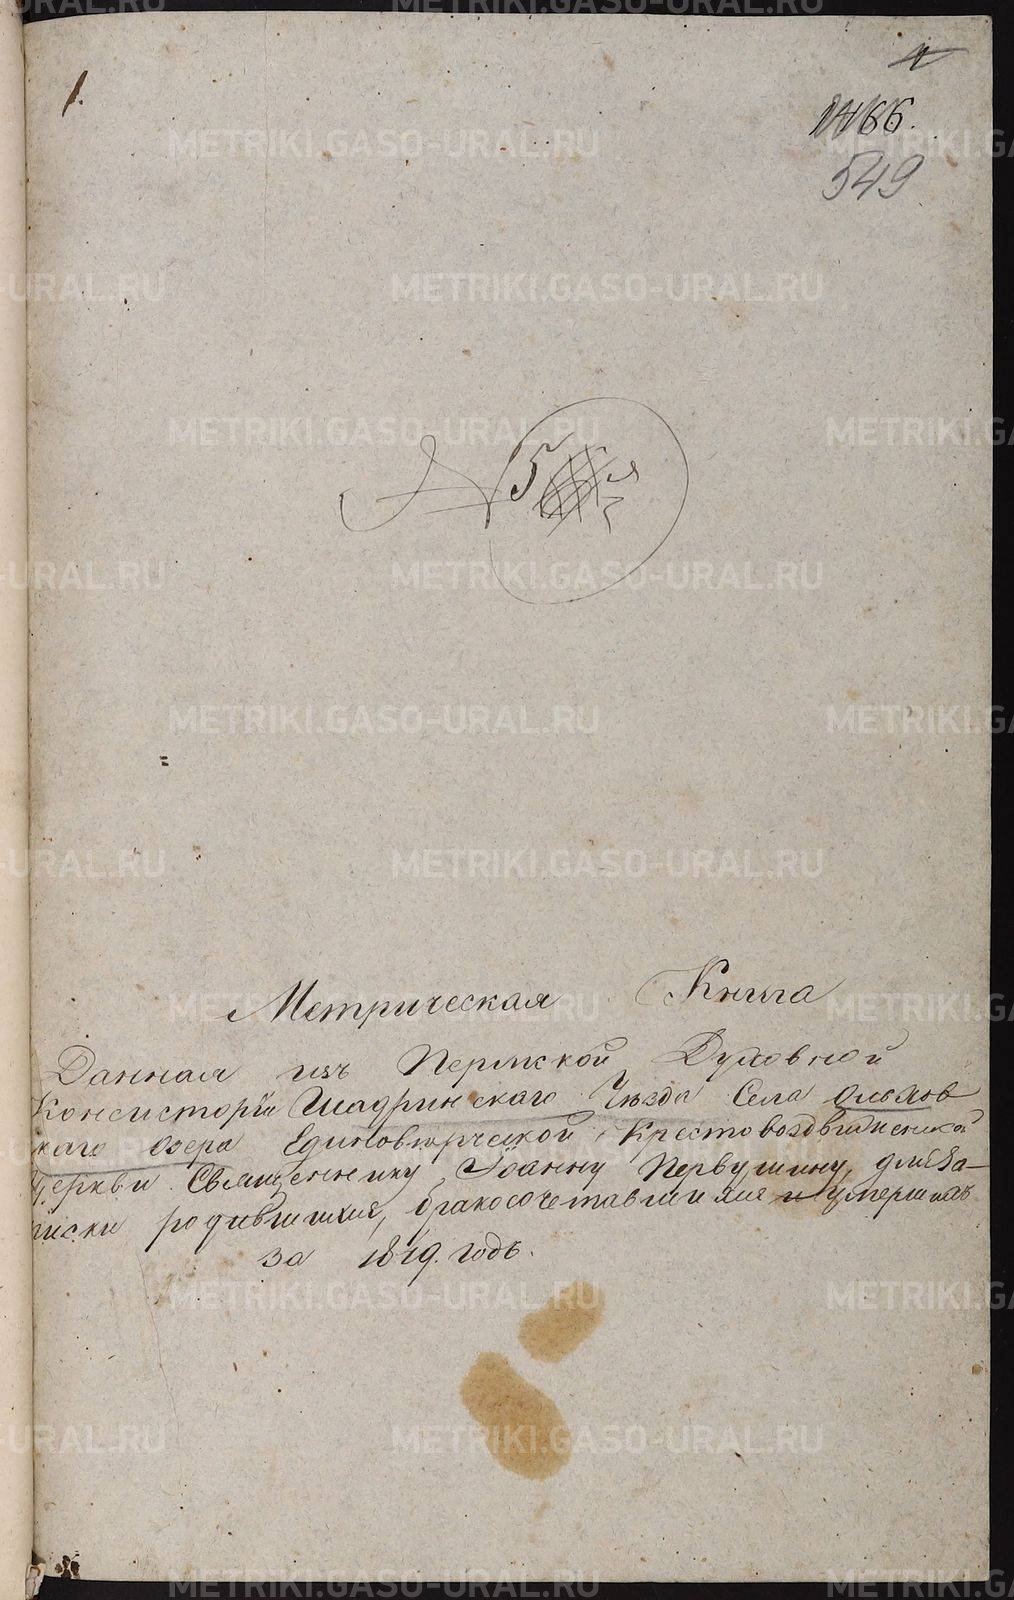 1.
549
№ 5
Метрическая Книга
Данная изъ Пермской Духовной
Консисторіи Шадринскаго Уѣзда Села Ольхов
скаго Озера Единовѣрческой Крестовоздвиженской
Церкви Священнику Іоанну Первушину, для за-
писки родившихся, бракосочетавшихся и умершихъ
за 1849. годъ.
METRIKI.GASO-URAL.RU